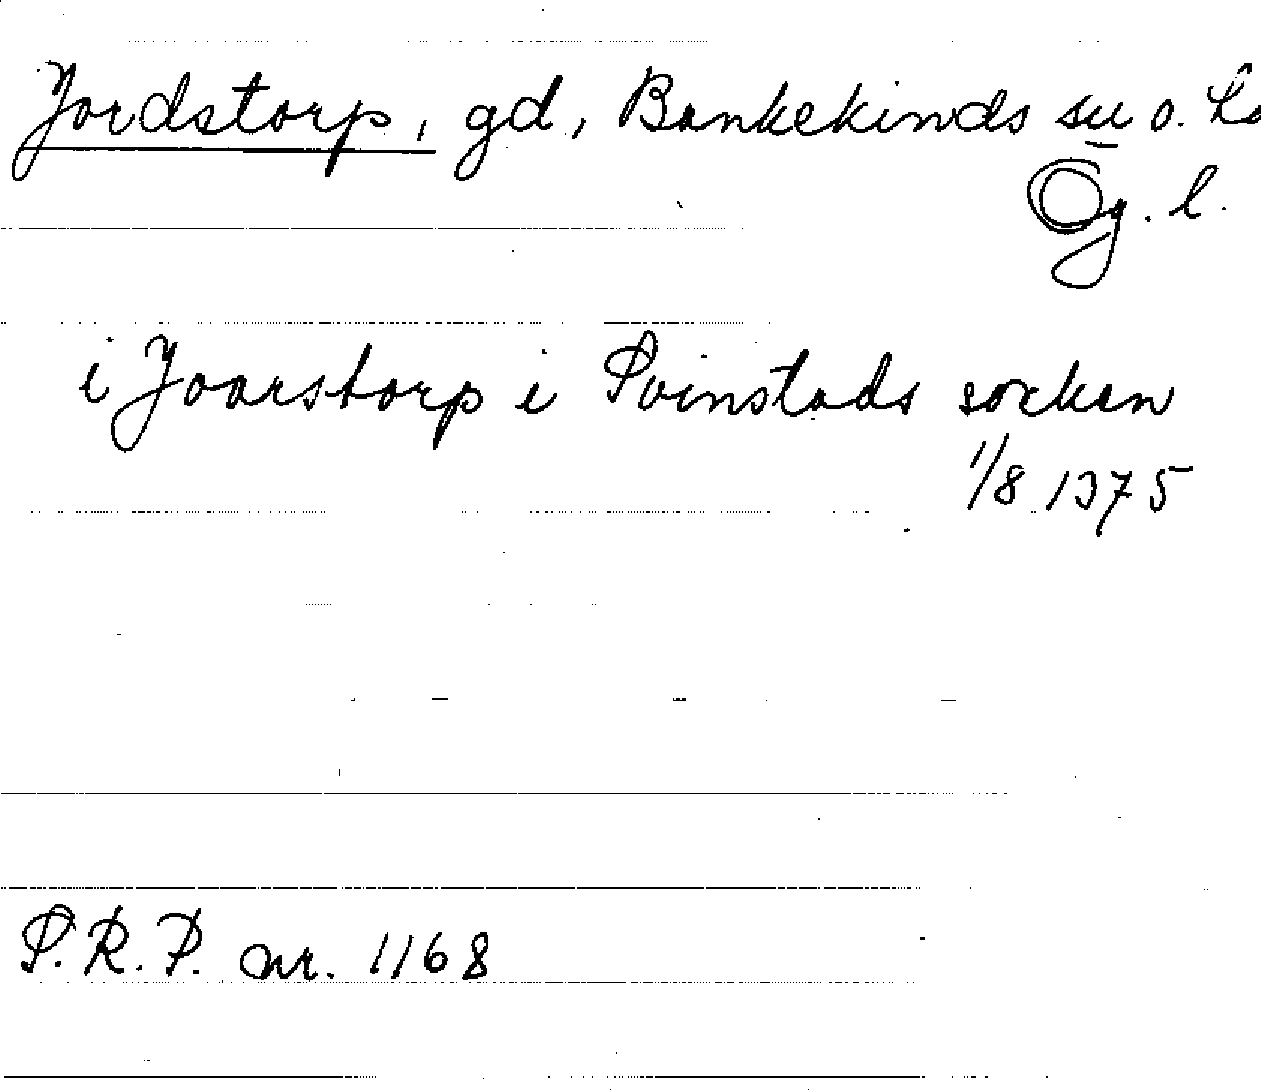 Jordstorp, gd, Bankekinds sn o. hd
Ög. l.
i Joarstorp i Svinstads socken
1/8 1375
S.R.P. nr. 1168